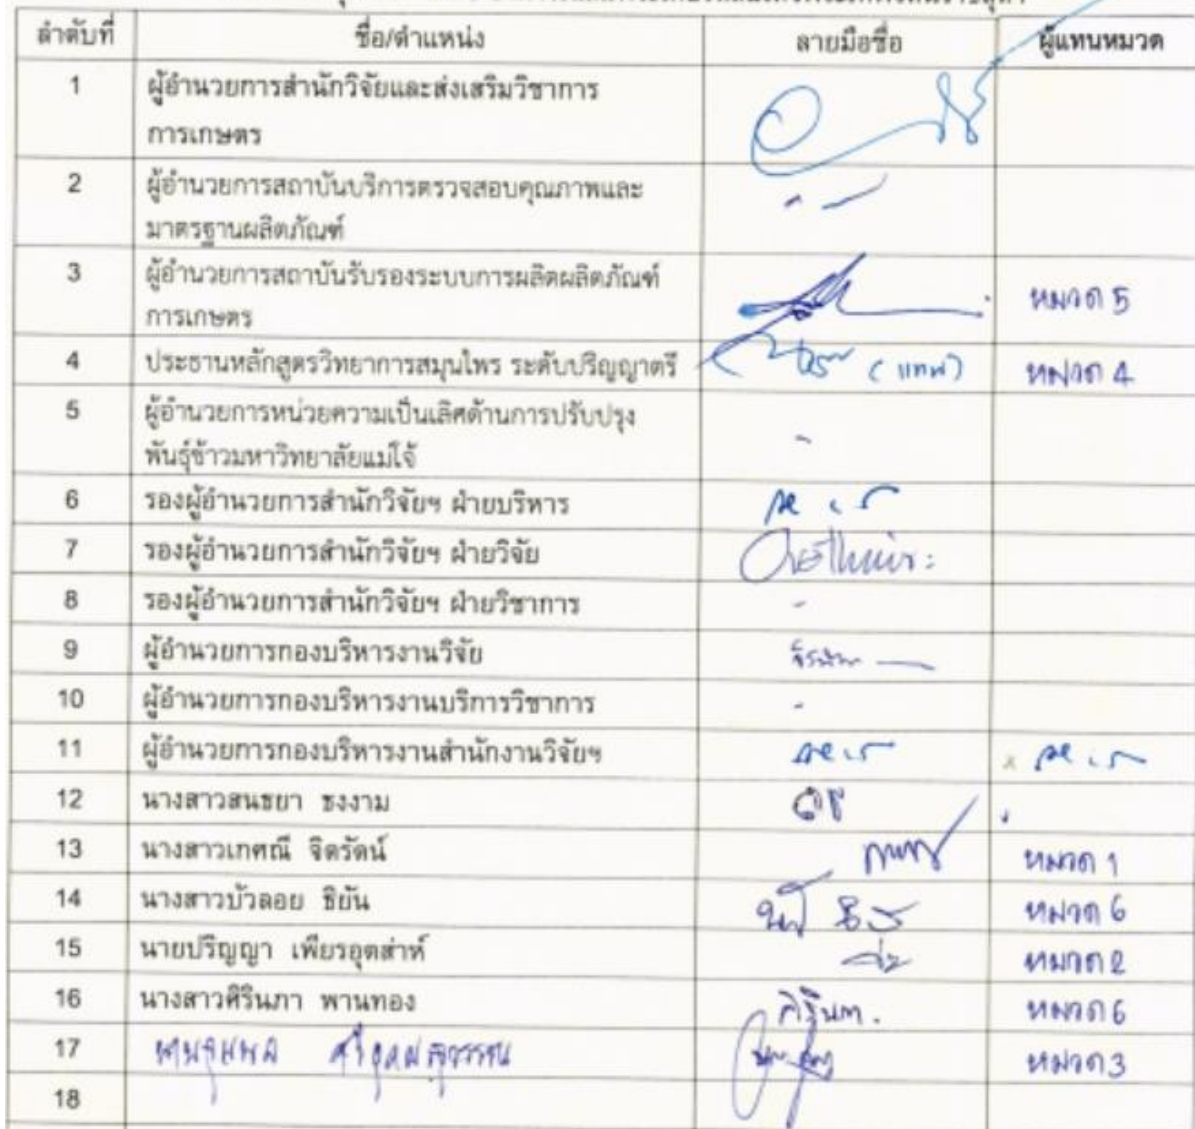 ลำดับที่ ชื่อ/ตำแหน่ง ลายมือชื่อ ผู้แทนหมวด
1 ผู้อำนวยการสำนักวิจัยและส่งเสริมวิชาการ
การเกษตร
2 ผู้อำนวยการสถาบันบริการตรวจสอบคุณภาพและ
มาตรฐานผลิตภัณฑ์
3 ผู้อำนวยการสถาบันรับรองระบบการผลิตผลิตภัณฑ์
การเกษตร หมวด 5
4 ประธานหลักสูตรวิทยาการสมุนไพร ระดับปริญญาตรี (แทน) หมวด 4
5 ผู้อำนวยการหน่วยความเป็นเลิศด้านการปรับปรุง
พันธุ์ข้าวมหาวิทยาลัยแม่โจ้ -
6 รองผู้อำนวยการสำนักวิจัยฯ ฝ่ายบริหาร
7 รองผู้อำนวยการสำนักวิจัยฯ ฝ่ายวิจัย
8 รองผู้อำนวยการสำนักวิจัยฯ ฝ่ายวิชาการ -
9 ผู้อำนวยการกองบริหารงานวิจัย
10 ผู้อำนวยการกองบริหารงานบริการวิชาการ -
11 ผู้อำนวยการกองบริหารงานสำนักงานวิจัยฯ
12 นางสาวสนธยา ธงงาม
13 นางสาวเกศณี จิตรัตน์ หมวด 1
14 นางสาวบัวลอย ธิยัน หมวด 6
15 นายปริญญา เพียรอุตส่าห์ หมวด 2
16 นางสาวศิรินภา พานทอง ศิรินภา. หมวด 6
17 หมวด 3
18